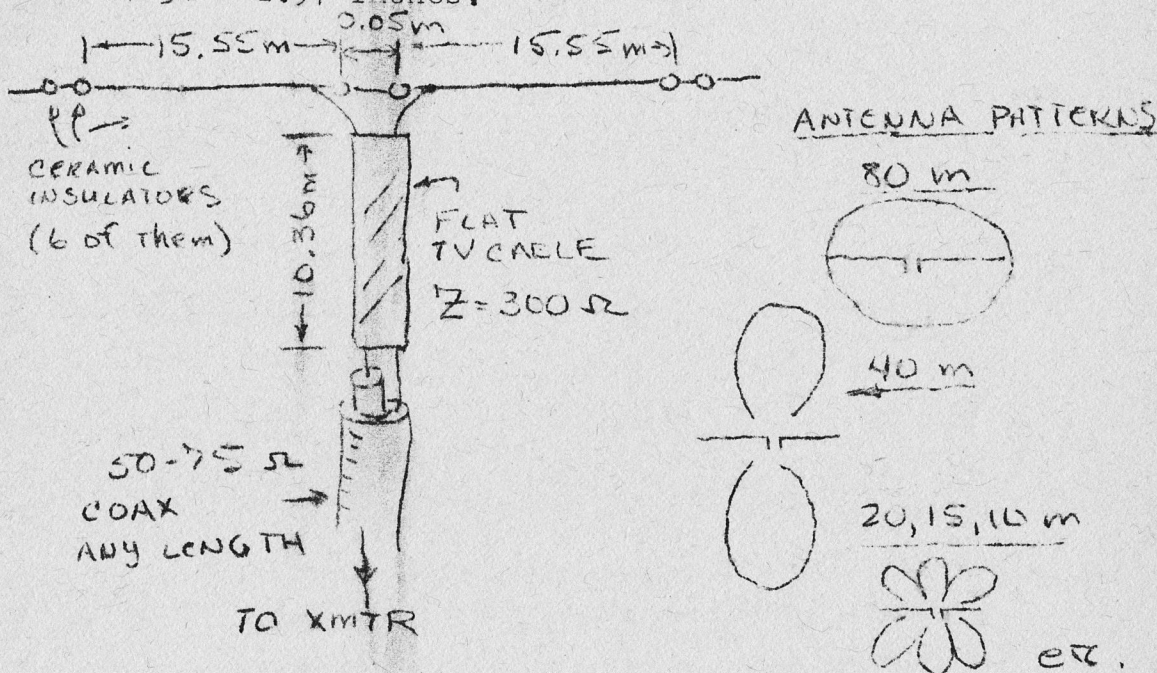 inches.
0.05m
15.55m
15.55m
CERAMIC
INSULATORS
(6 of them)
10.36m
FLAT
TV CABLE
Z=300 Ω
50-75 Ω
COAX
ANY LENGTH
TO XMTR
ANTENNA PATTERNS
80 m
40 m
20,15,10 m
etc.